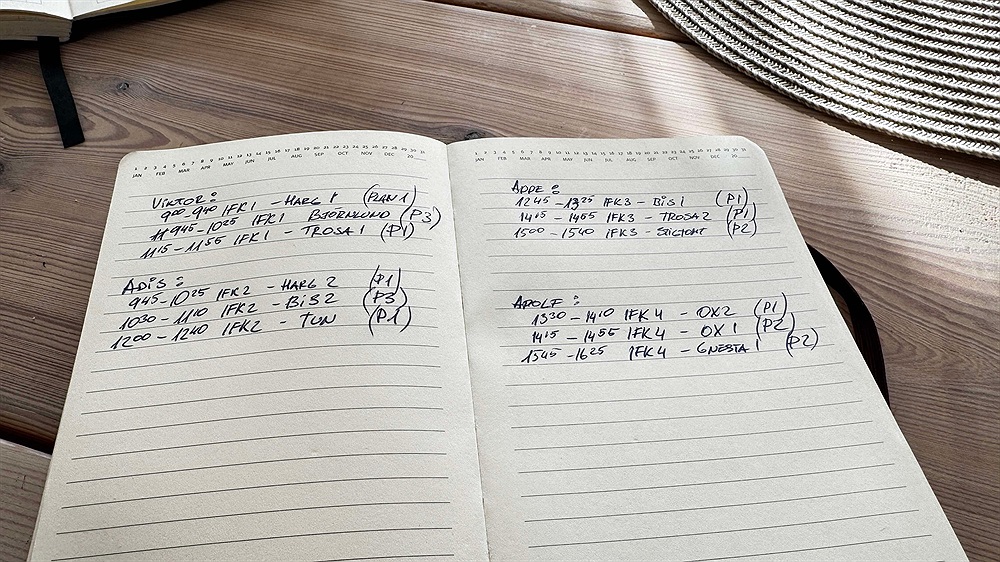 1 2 3 4 5 6 7 8 9 10 11 12 13 14 15 16 17 18 19 20 21 22 23 24 25 26 27 28 29 30 31
JAN FEB MAR APR MAY JUN JUL AUG SEP OCT NOV DEC 20
VIKTOR:
900-940 IFK1 - HARG 1 (PLAN 1)
945-1025 IFK1 BJÖRNLUND (P3)
1115-1155 IFK1 - TROSA 1 (P1)
ADIS:
945-1025 IFK2 - HARG 2 (P1)
1030-1110 IFK2 - BIS 2 (P3)
1200-1240 IFK2 - TUN (P1)
1 2 3 4 5 6 7 8 9 10 11 12 13 14 15 16 17 18 19 20 21 22 23 24 25 26 27 28 29 30 31
JAN FEB MAR APR MAY JUN JUL AUG SEP OCT NOV DEC 20
ADDE:
1245-1325 IFK3 - BIS 1 (P1)
1415-1455 IFK3 - TROSA 2 (P1)
1500-1540 IFK3 - (P2)
ADOLF:
1330-1410 IFK4 - OX2 (P1)
1415-1455 IFK4 - OX1 (P2)
1545-1625 IFK4 - GNESTA 1 (P2)